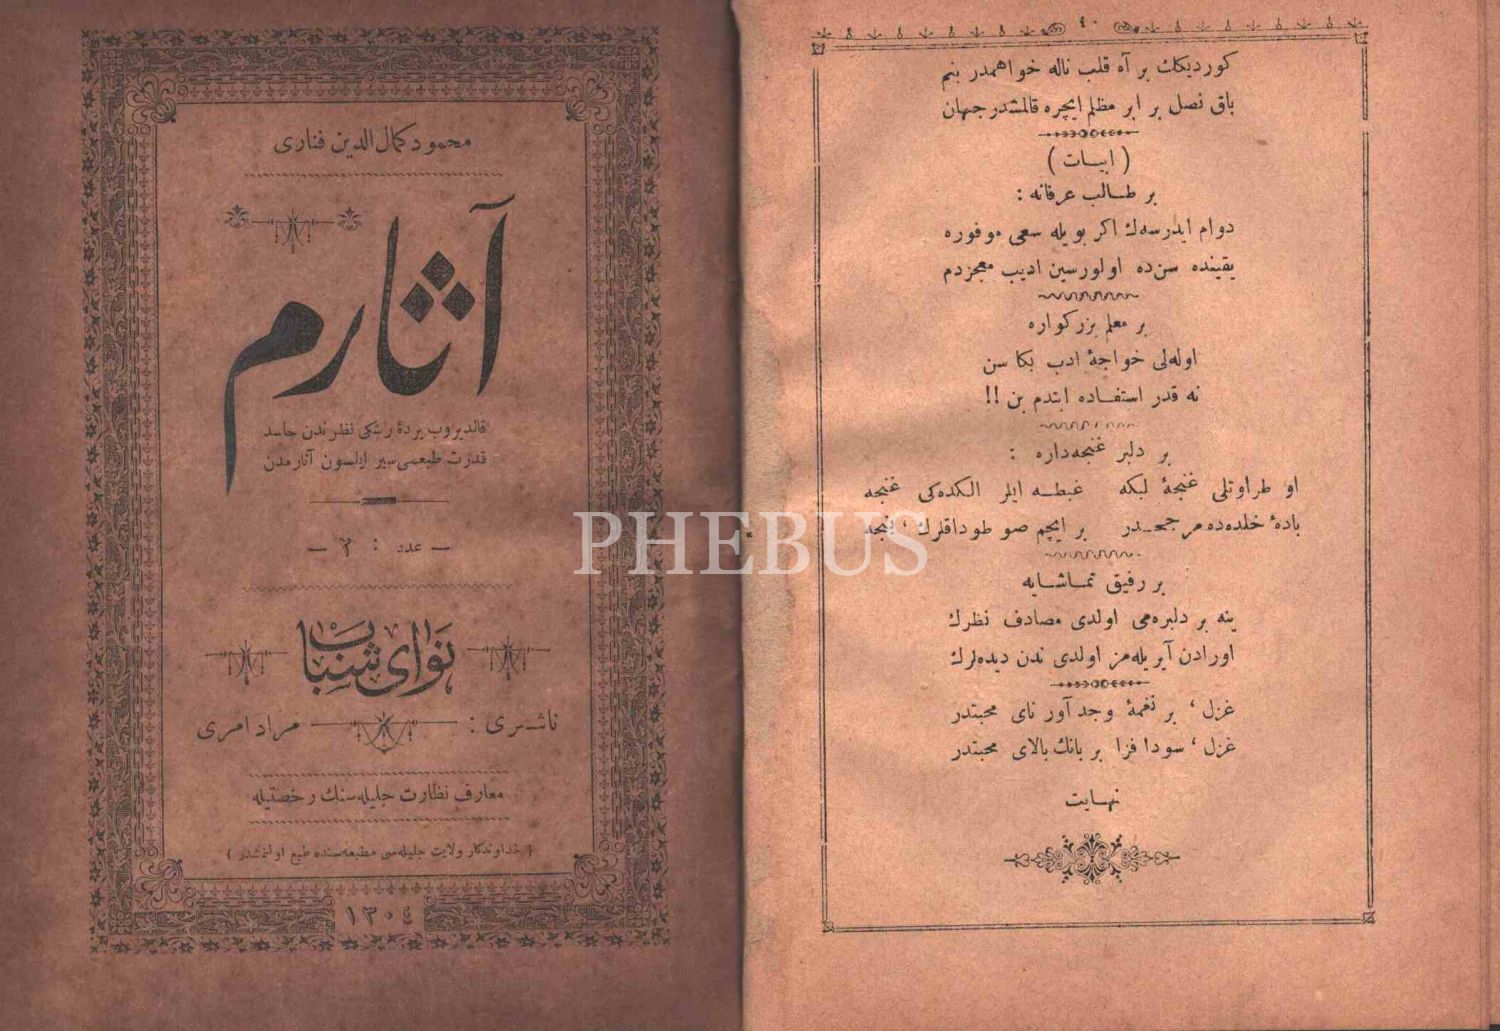 محمود كمال الدين فناری
آثارم
قالديروب پردهٔ رشكی نظرندن حاسد
قدرت طبعمی سير ايلسون آثارمدن
— عدد : ٢ —
نوای شباب
ناشری : مراد امری
معارف نظارت جليله سنك رخصتيله
{ خداوندكار ولايت جليله سی مطبعه سنده طبع اولنمشدر }
١٣٠٤
٤٠
كورديكك بر آه قلب ناله خواهمدر بنم
باق نصل بر ابر مظلم ايچره قالمشدر جهان
( ابيات )
بر طالب عرفانه :
دوام ايدرسه ك اكر بويله سعی موفوره
يقينده سن ده اولورسين اديب معجزدم
بر معلم بزركواره
اوله لی خواجهٔ ادب بكا سن
نه قدر استفاده ايتدم بن !!
بر دلبر غنجه داره :
او طراوتلی غنجهٔ لبكه غبطه ايلر الكده كی غنجه
بادهٔ خلده ده مرجحدر بر ايچم صو طوداقلرك ، نجه
بر رفيق تماشايه
ينه بر دلبره می اولدی مصادف نظرك
اورادن آيريله مز اولدی ندن ديده لرك
غزل ، بر نغمهٔ وجد آور نای محبتدر
غزل ، سودا فزا بر بانك بالای محبتدر
نهايت
PHEBUS